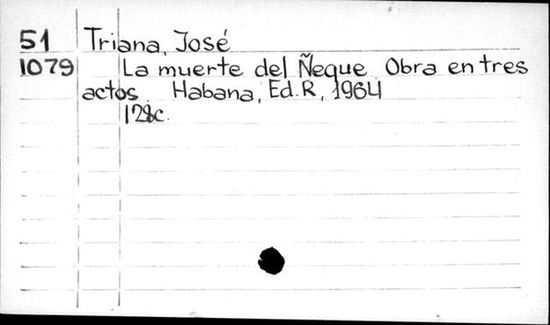 51 Triana, José
1079 La muerte del Ñeque. Obra en tres
actos. Habana, Ed. R, 1964
128c.